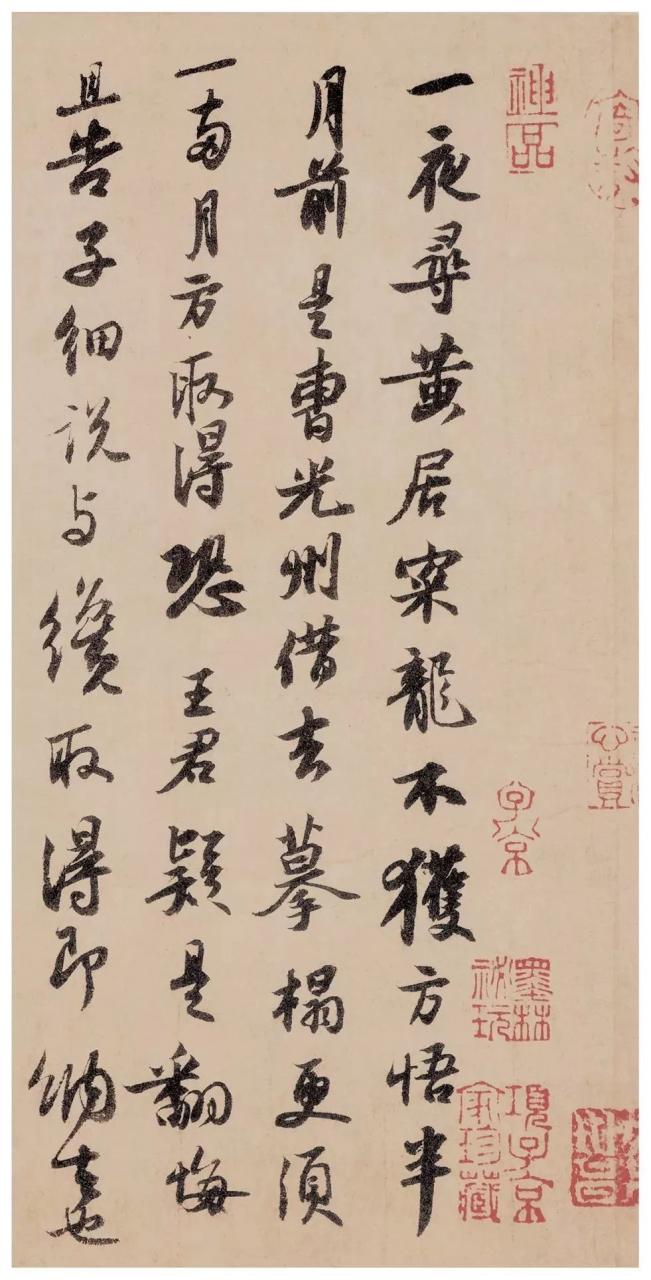 一夜尋黃居寀龍不獲方悟半
月前是曹光州借去摹榻更須
一兩月方取得恐王君疑是翻悔
且告子細說与纔取得即納去也
神品
子京
墨林祕玩
項子京家珍藏